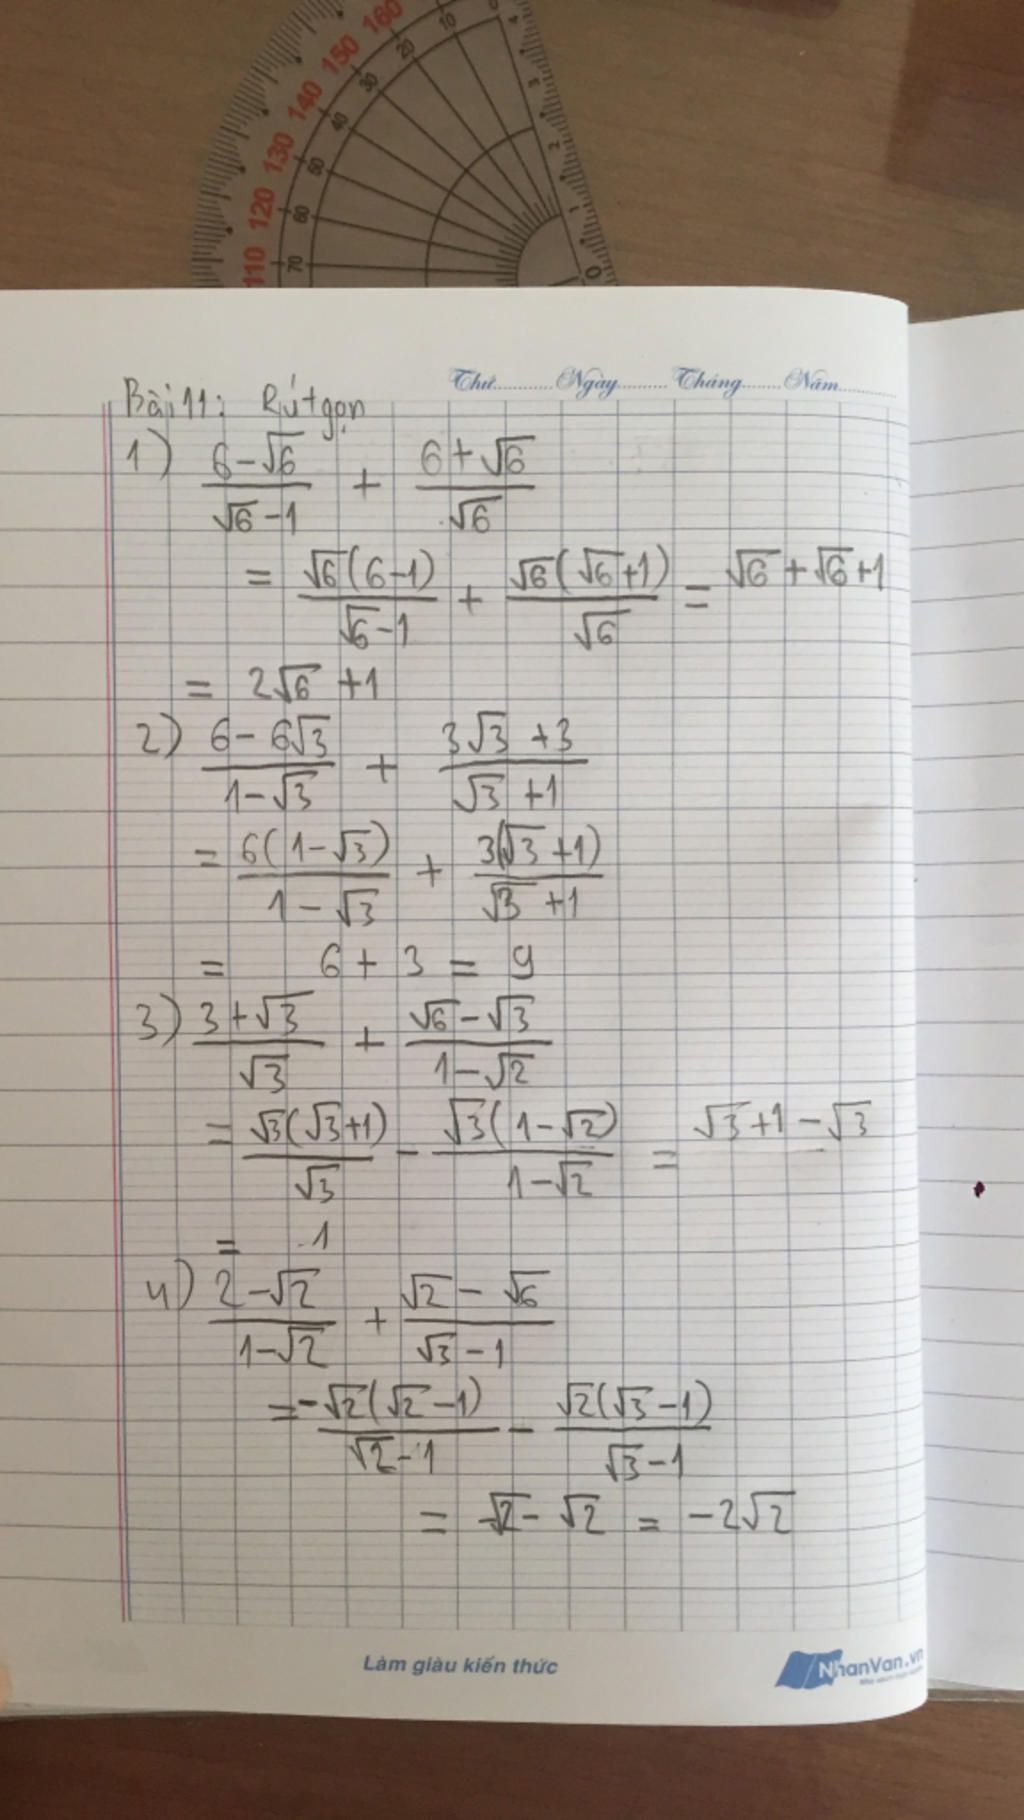 160
150
140
130
120
110
10
20
30
40
50
60
70
4
3
2
1
0
Thứ............Ngày..........Tháng........Năm............
Bài 11: Rút gọn
1) (6-√6)/(√6-1) + (6+√6)/√6
= √6(6-1)/(√6-1) + √6(√6+1)/√6 = √6+√6+1
= 2√6 +1
2) (6-6√3)/(1-√3) + (3√3+3)/(√3+1)
= 6(1-√3)/(1-√3) + 3(√3+1)/(√3+1)
= 6 + 3 = 9
3) (3+√3)/√3 + (√6-√3)/(1-√2)
= √3(√3+1)/√3 - √3(1-√2)/(1-√2) = √3+1-√3
= 1
4) (2-√2)/(1-√2) + (√2-√6)/(√3-1)
= -√2(√2-1)/(√2-1) - √2(√3-1)/(√3-1)
= -√2-√2 = -2√2
Làm giàu kiến thức
NhanVan.vn